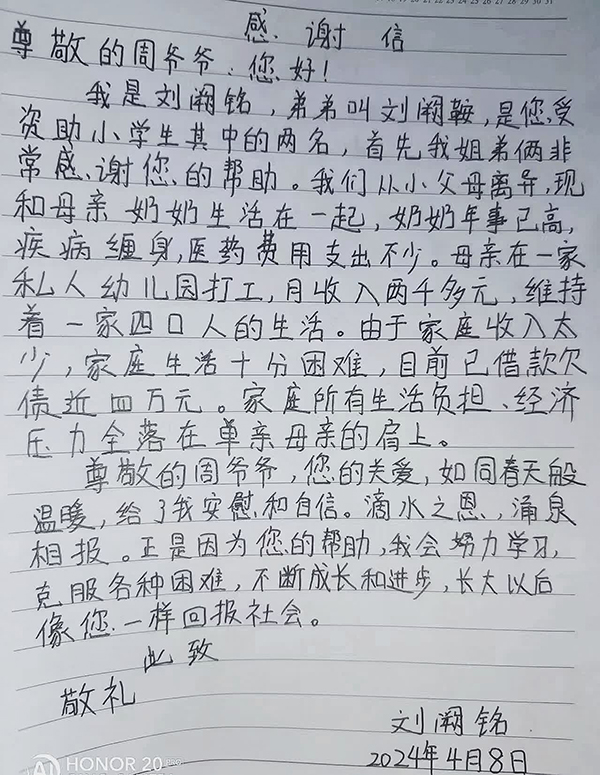 感谢信
尊敬的周爷爷:您好!
我是刘阙铭,弟弟叫刘阙鞍,是您受
资助小学生其中的两名,首先我姐弟俩非
常感谢您的帮助。我们从小父母离异,现
和母亲奶奶生活在一起,奶奶年事已高,
疾病缠身,医药费用支出不少。母亲在一家
私人幼儿园打工,月收入两千多元,维持
着一家四口人的生活。由于家庭收入太
少,家庭生活十分困难,目前已借款欠
债近四万元。家庭所有生活负担、经济
压力全落在单亲母亲的肩上。
尊敬的周爷爷,您的关爱,如同春天般
温暖,给了我安慰和自信。滴水之恩,涌泉
相报。正是因为您的帮助,我会努力学习,
克服各种困难,不断成长和进步,长大以后
像您一样回报社会。
此致
敬礼
刘阙铭
2024年4月8日
HONOR 20